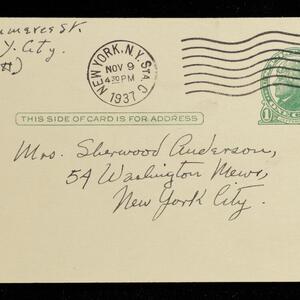 St.
Y. City.
NEW YORK, N.Y. STA. C
NOV 9
4 30 PM
1937
THIS SIDE OF CARD IS FOR ADDRESS
1
Mrs. Sherwood Anderson,
54 Washington Mews,
New York City.